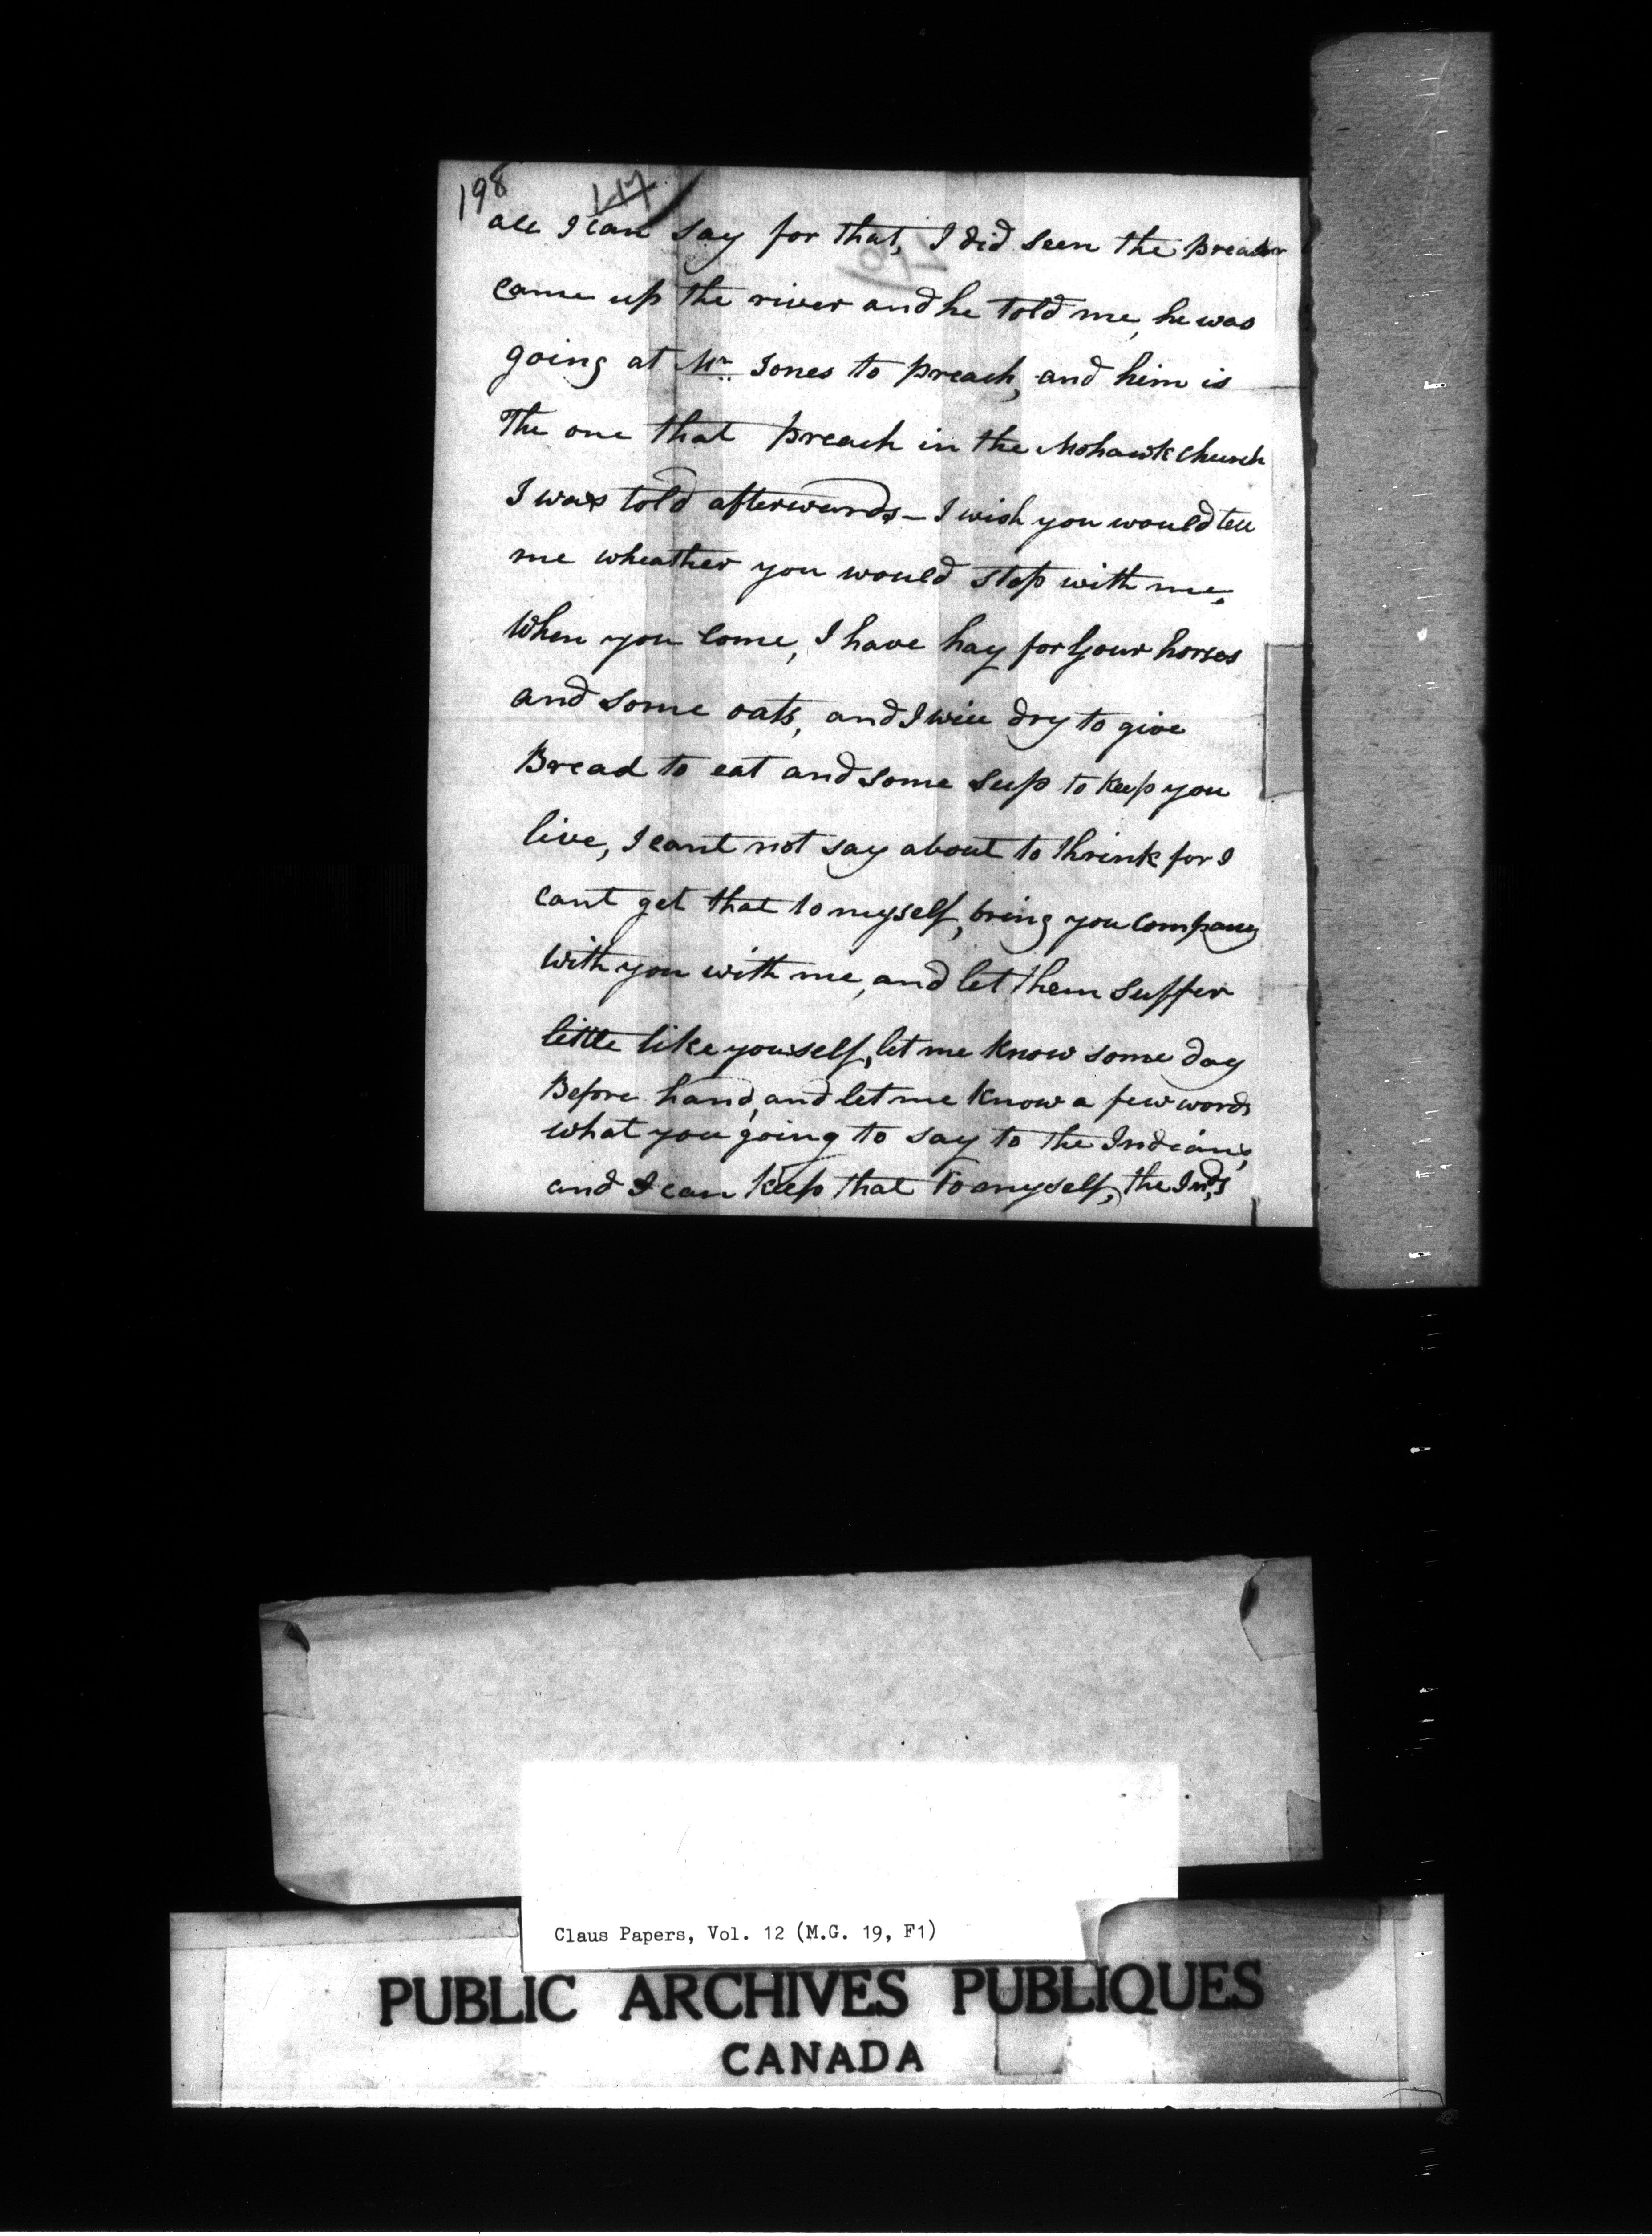 198 147
all I can say for that, I did seen the preacher
came up the river and he told me, he was
going at Mr. Jones to preach, and him is
The one that preach in the Mohawk church
I was told afterwards - I wish you would tell
me wheather you would stop with me,
When you come, I have hay for your horses
and some oats, and I will dry to give
Bread to eat and some sup to keep you
live, I cant not say about to thrink for I
cant get that to myself, bring you company
with you with me, and let them suffer
little like yourself, let me know some day
Before hand, and let me know a few words
what you going to say to the Indians,
and I can keep that to myself, the Inds
Claus Papers, Vol. 12 (M.G. 19, F1)
PUBLIC ARCHIVES PUBLIQUES
CANADA